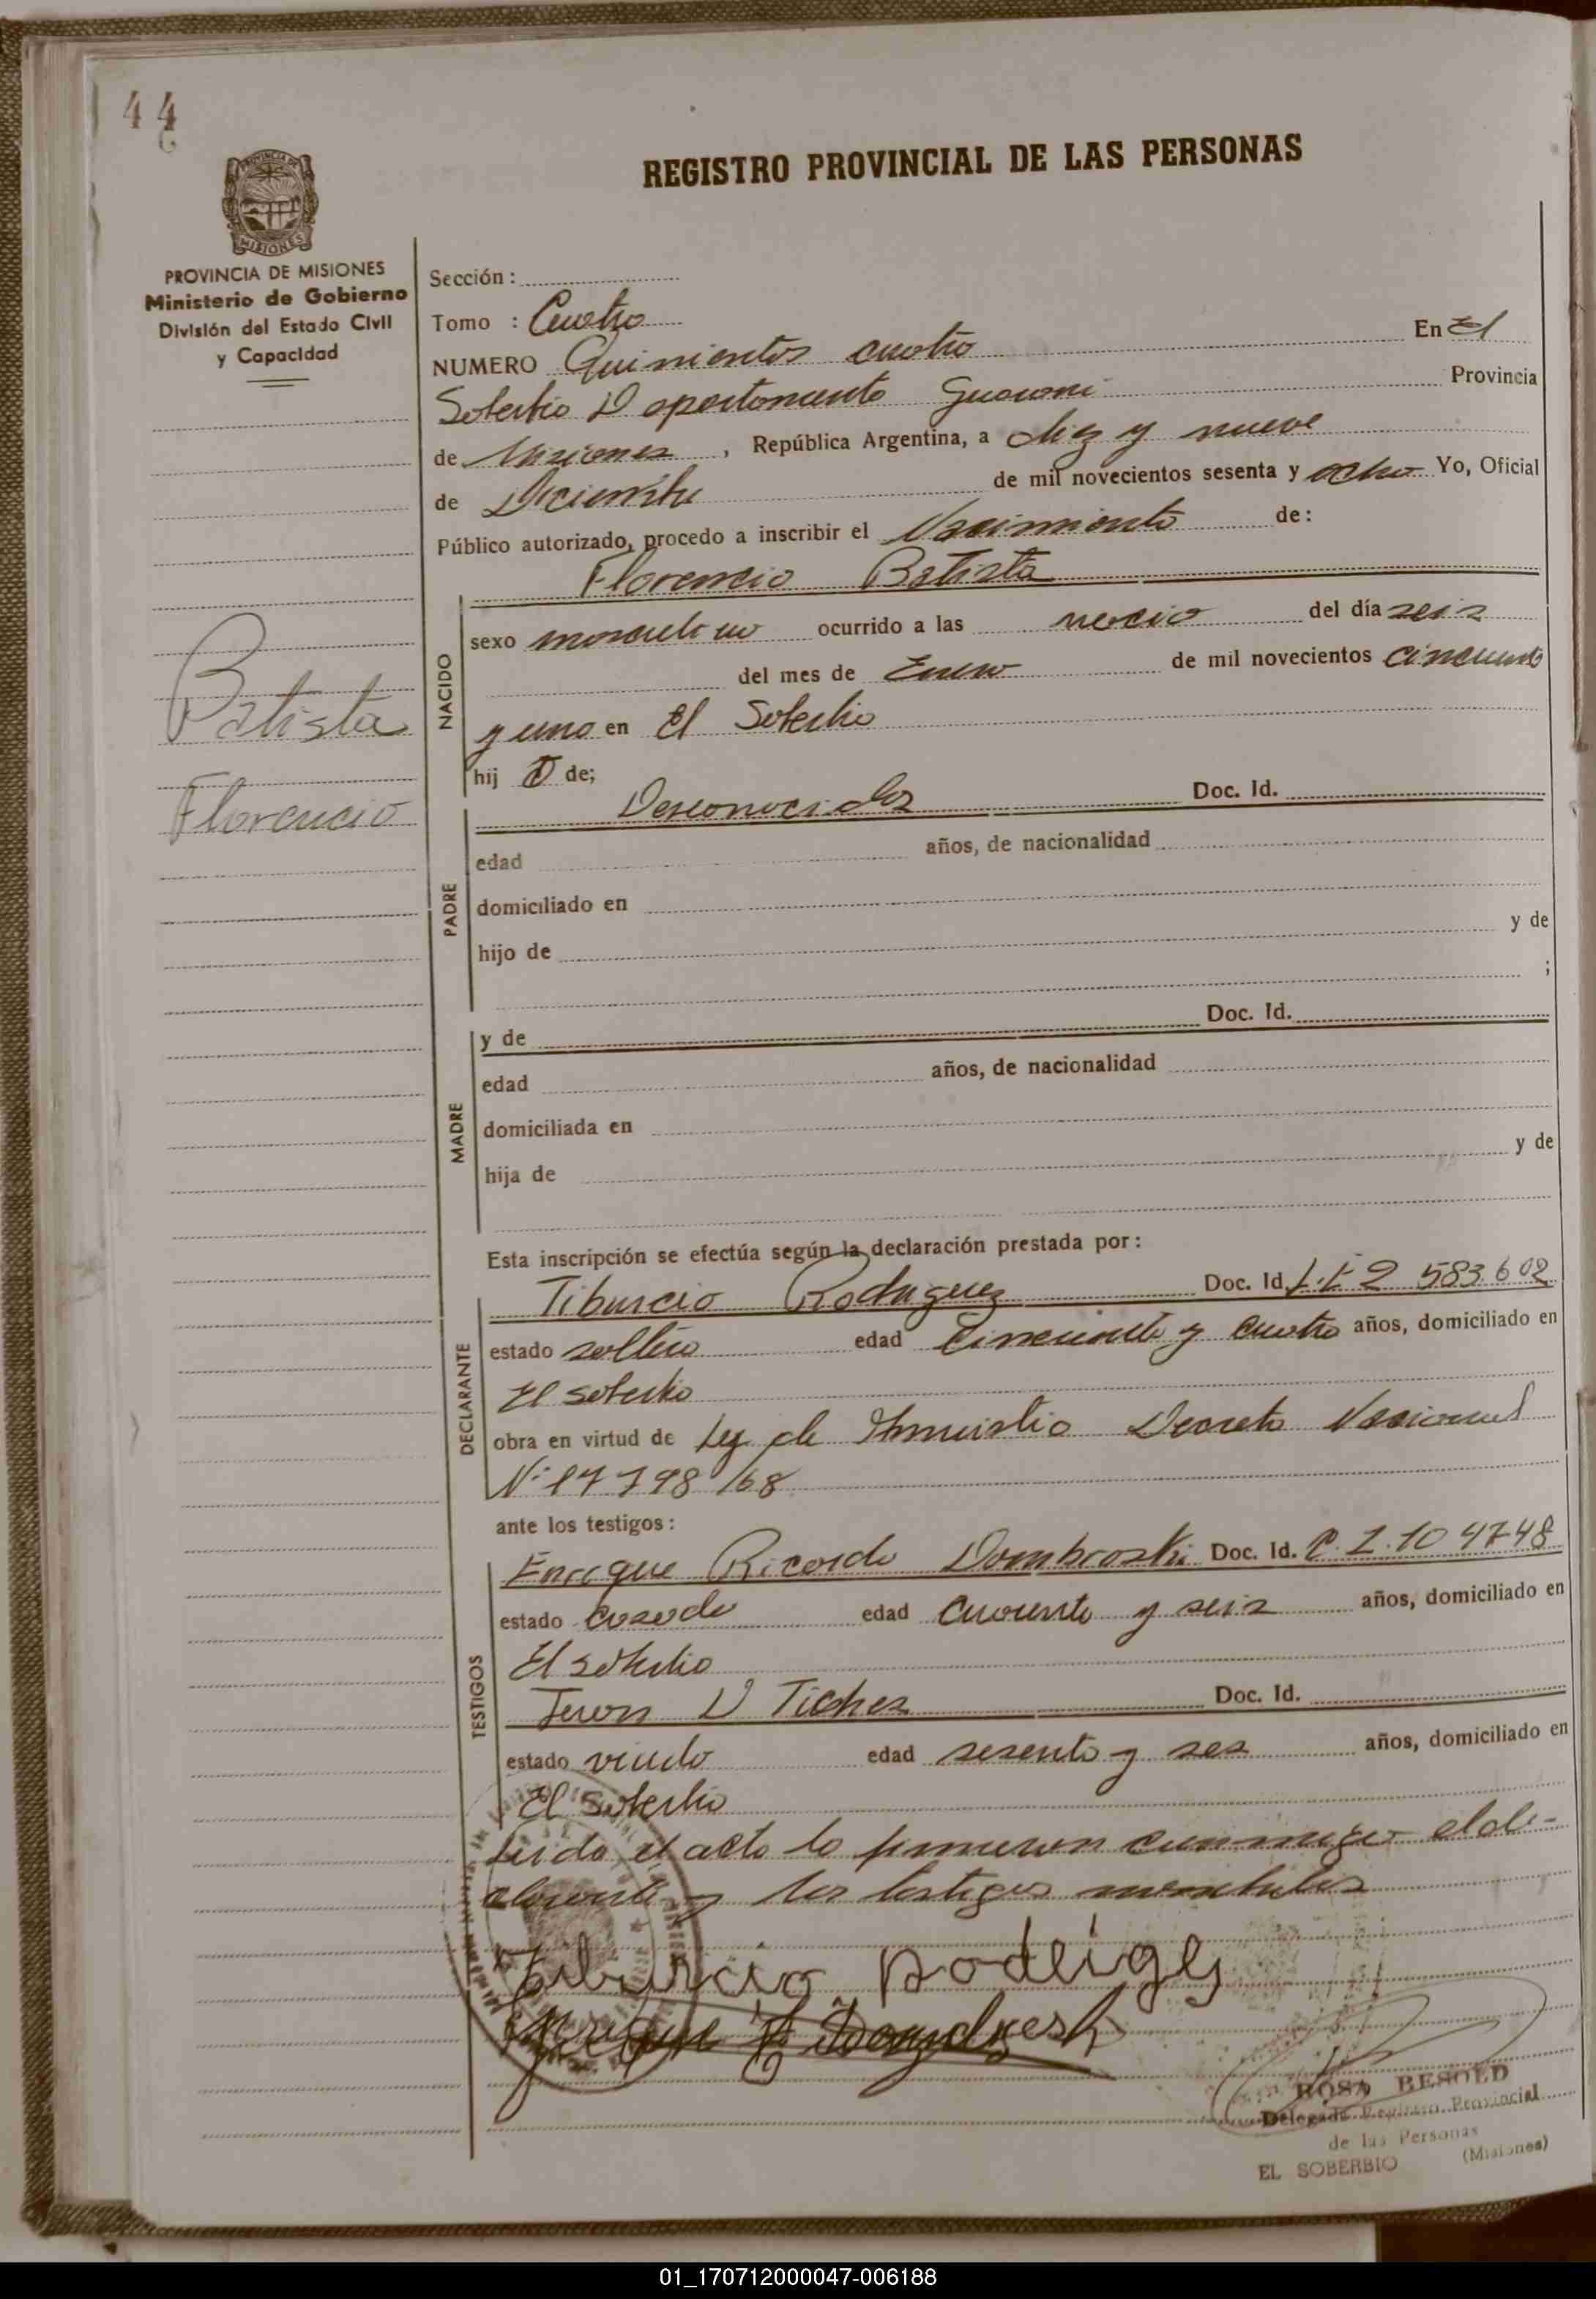 44
REGISTRO PROVINCIAL DE LAS PERSONAS
PROVINCIA DE MISIONES
MISIONES
PROVINCIA DE MISIONES
Ministerio de Gobierno
División del Estado Civil
y Capacidad
Batista
Florencio
Sección:
Tomo : Cuatro
NUMERO Quinientos cuatro En El
Soberbio Departamento Guarani Provincia
de Misiones, República Argentina, a diez y nueve
de Diciembre de mil novecientos sesenta y ocho Yo, Oficial
Público autorizado, procedo a inscribir el Nacimiento de:
Florencio Batista
NACIDO
sexo masculino ocurrido a las del día seis
del mes de Enero de mil novecientos cincuenta
y uno en El Soberbio
hij o de;
PADRE
Desconocidos Doc. Id.
edad años, de nacionalidad
domiciliado en
hijo de y de
;
MADRE
y de Doc. Id.
edad años, de nacionalidad
domiciliada en
hija de y de
Esta inscripción se efectúa según la declaración prestada por:
DECLARANTE
Tiburcio Rodriguez Doc. Id. L.E 2 583.602
estado soltero edad Cincuenta y cuatro años, domiciliado en
El soberbio
obra en virtud de Ley de Amnistia Decreto Nacional
Nº 17798/68
ante los testigos:
TESTIGOS
Enrique Ricardo Dombroski Doc. Id. C.I.104748
estado casado edad cuarenta y seis años, domiciliado en
El soberbio
Juan D Tiches Doc. Id.
estado viudo edad sesenta y ses años, domiciliado en
El Soberbio
Leido el acto lo firmaron conmigo el de-
clarante y los testigos
Tiburcio Rodrigez
Enrique
ROSA BESOLD
Delegada Registro Provincial
de las Personas
EL SOBERBIO (Misiones)
01_170712000047-006188